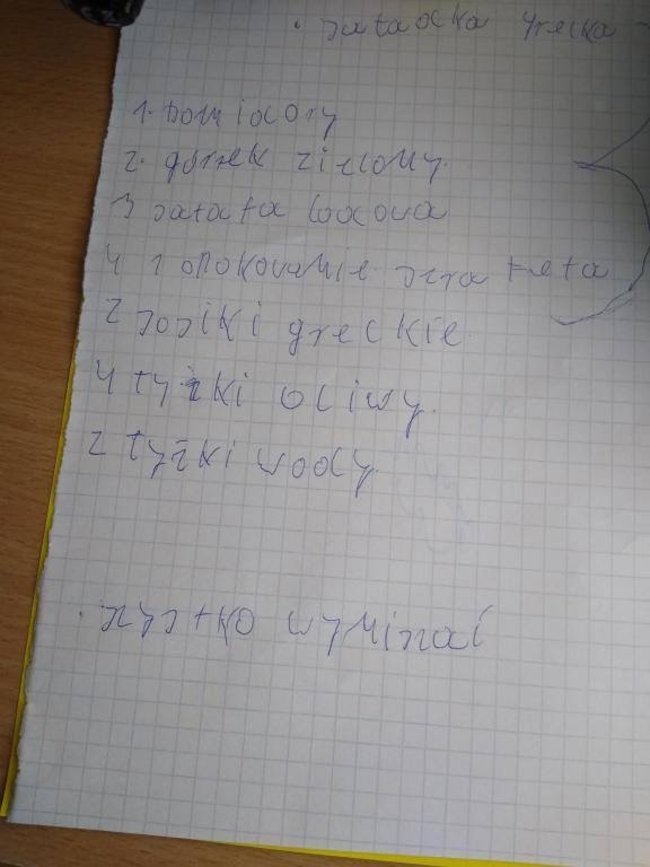 · sałatka grecka
1. pomidory
2. górek zielony.
3 sałata lodowa
4 1 opakowanie sera feta
2 sosiki greckie
4 łyżki oliwy.
2 łyżki wody
· wszystko wymiszać